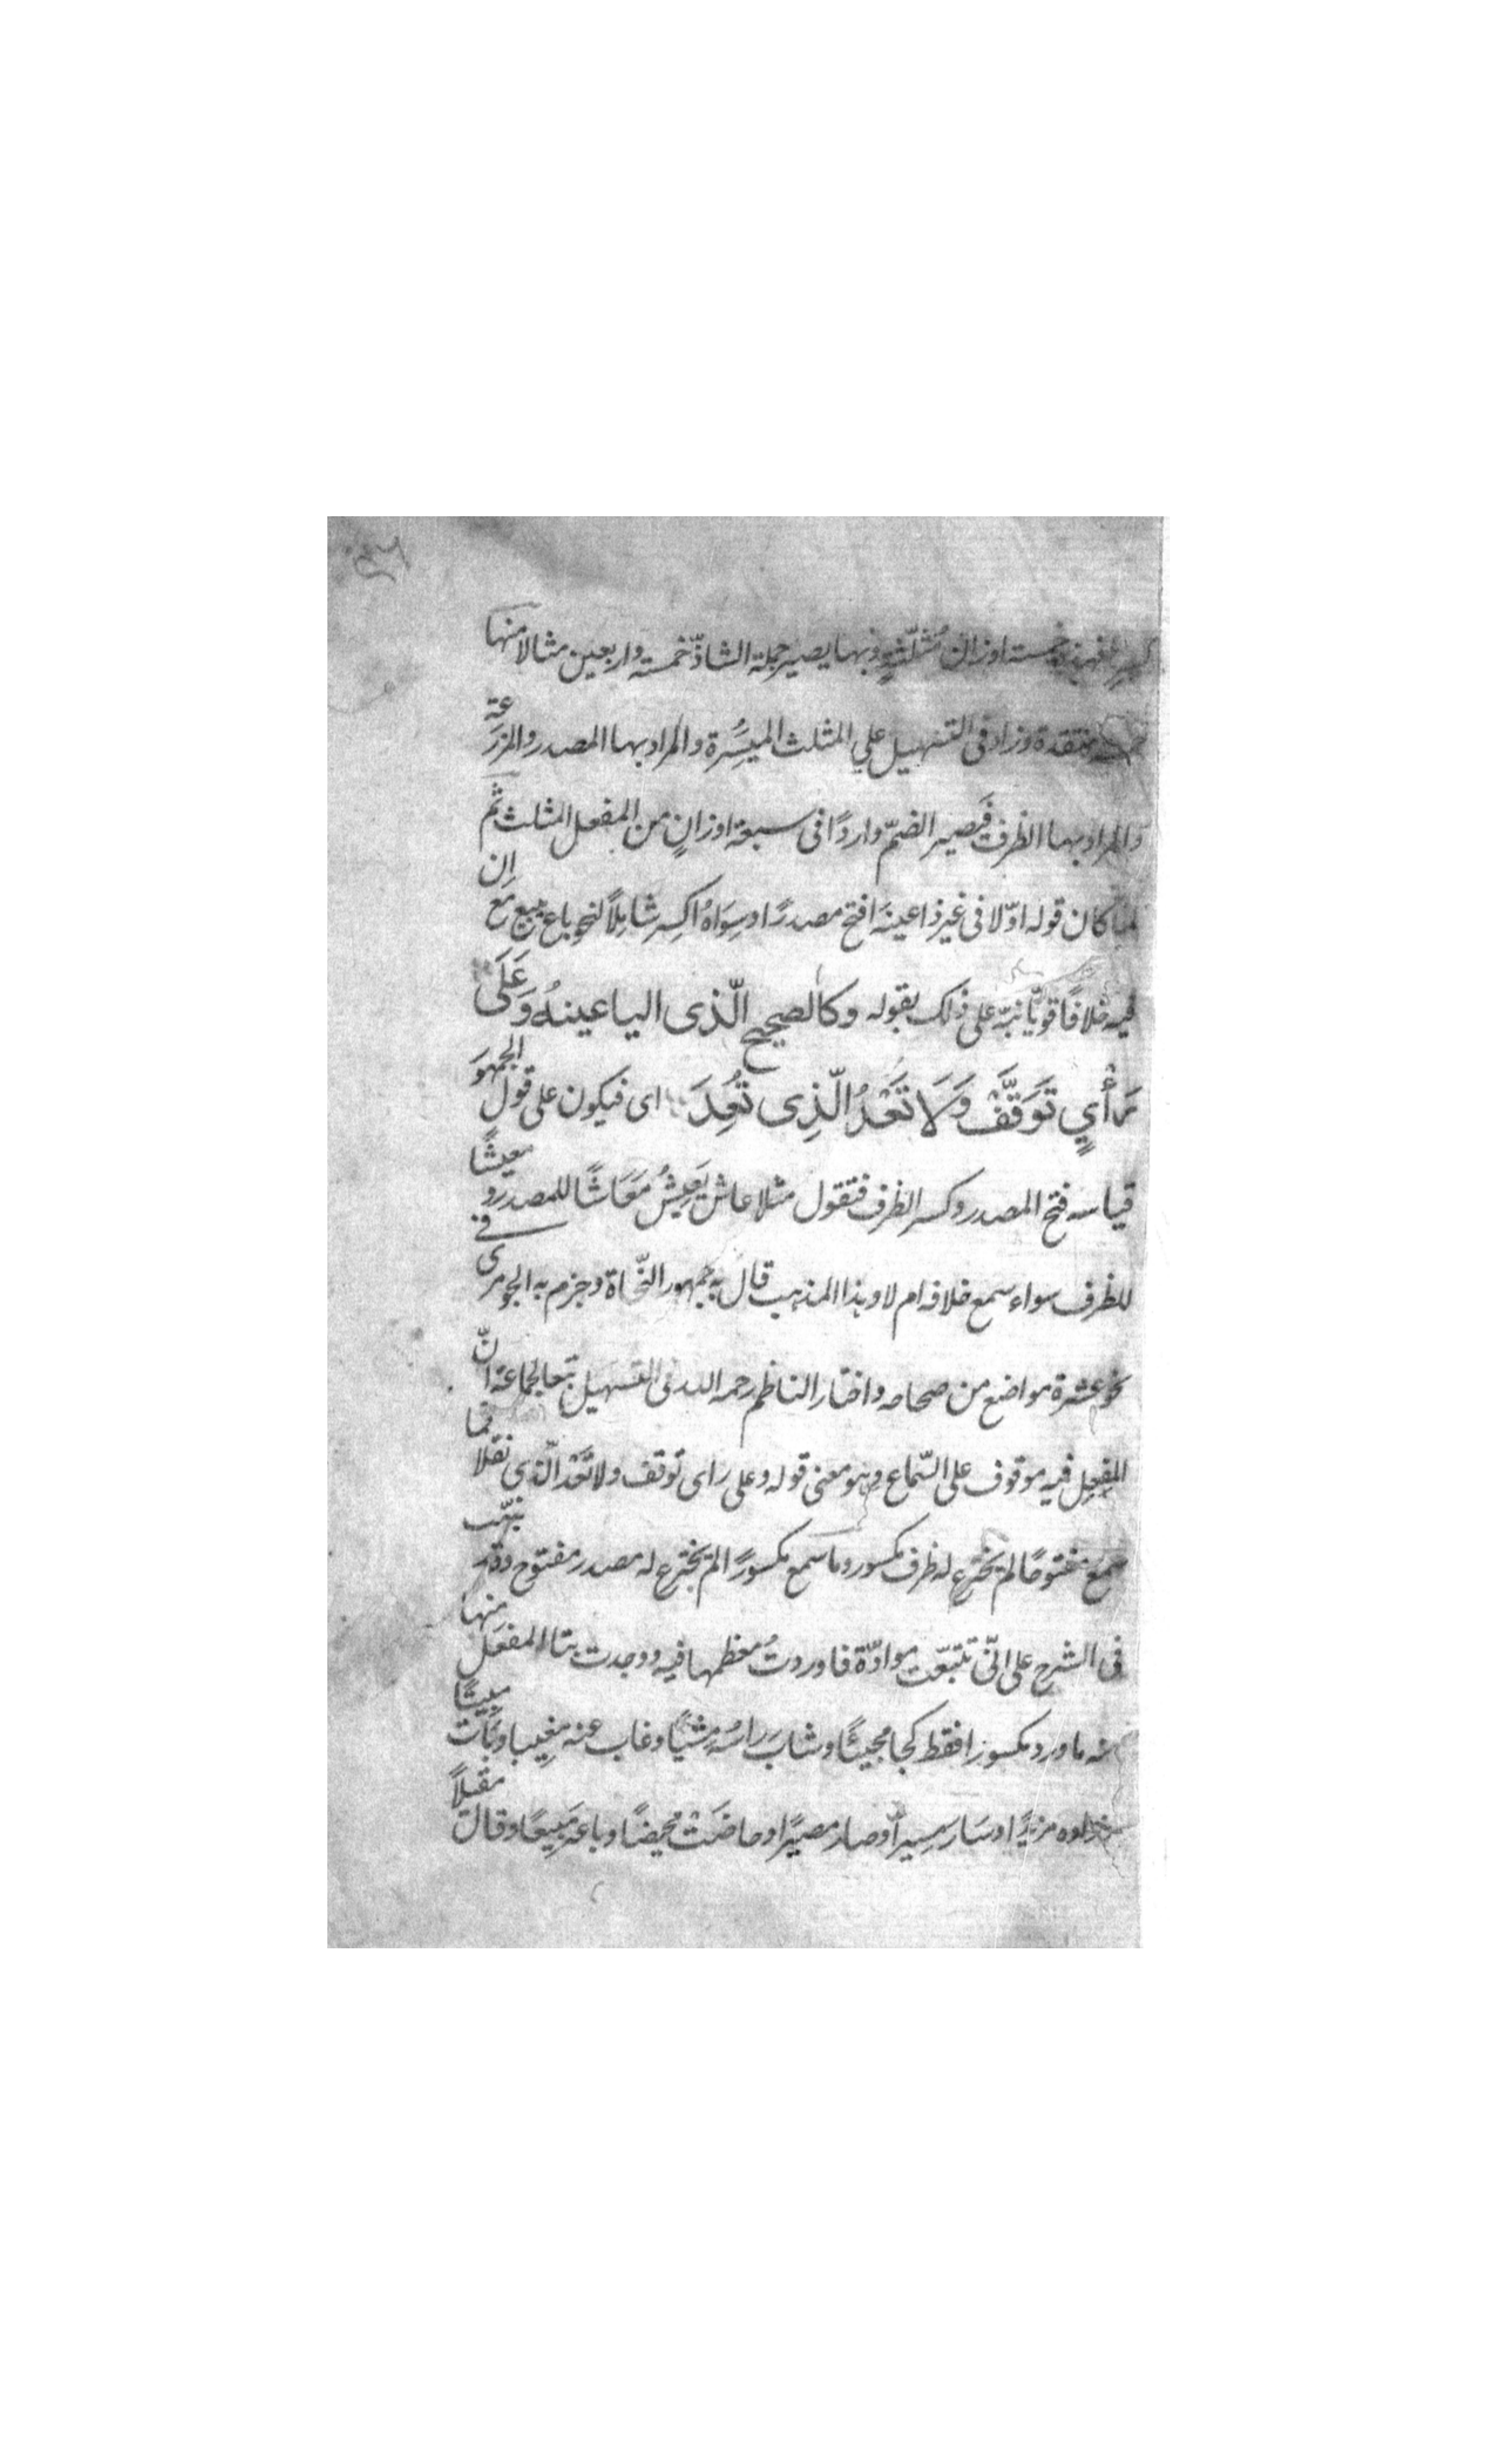 فهذه خمسة اوزان مُثلّثةٍ وبها يصير جملة الشاذّ خمسة واربعين مثالا منها
متقدة وزاد فى التسهيل على المثلث الميسُرة والمراد بها المصدر والمزرَعة
والمراد بها الظرف فيَصير الضمّ واردًا فى سبعة اوزانٍ من المفعل المثلث ثم
لما كان قوله اوّلا فى غير ذا عينهَ افتح مصدرًا وسِوَاهُ اكسِر شامِلاً لنحو باع يبيع مع إن
فيه خلافًا قويًّا نبّه على ذلك بقوله وكالصحيح الّذى اليا عينهُ وَعَلَى
رَأْيٍ تَوَقَّفْ وَلَا تَعْدُ الّذِى نُقِلَا اى فيكون على قول الجمهور
قياسه فتح المصدر وكسر الظرف فتقول مثلا عاش يَعِيْشُ مَعَاشًا للمصدر ومعيشًا
للظرف سواء سمع خلافه ام لا وهذا المذهب قال به جمهور النّحاة وجزم به الجوهرى فى
نحو عشرة مواضع من صحاحه واختار الناظم رحمه الله فى التسهيل تبعا لجماعة انّ
المفعِل فيه موقوف على السّماع وهو معنى قوله وعلى راى توقف ولا تَعْدُ الّذى نقلا فما
سمع مفتوحًا لم يخترع له ظرف مكسور وما سمع مكسورًا لم يخترع له مصدر مفتوح وقد
فى الشرح على انّى تتبعّت موادّه فاوردتُ معظمها فيه ووجدت بنا المفعَل منها
ما ورد مكسورا فقط كجا مجيئًا وشابَ راسُه مشيبًا وغاب عنه مغِيبا وبَات مبيتًا
وزاده مزيدًا وسَار مسِيرًا وصار مصيرًا وحاضَتْ محيضًا وباعَه مَبِيعًا وقال مقيلاً